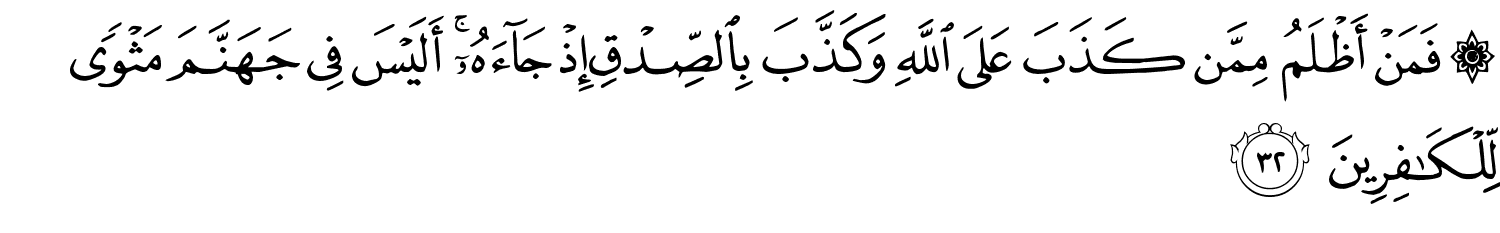 ۞ فَمَنْ أَظْلَمُ مِمَّن كَذَبَ عَلَى ٱللَّهِ وَكَذَّبَ بِٱلصِّدْقِ إِذْ جَآءَهُۥٓ ۚ أَلَيْسَ فِى جَهَنَّمَ مَثْوًى
لِّلْكَـٰفِرِينَ ٣٢